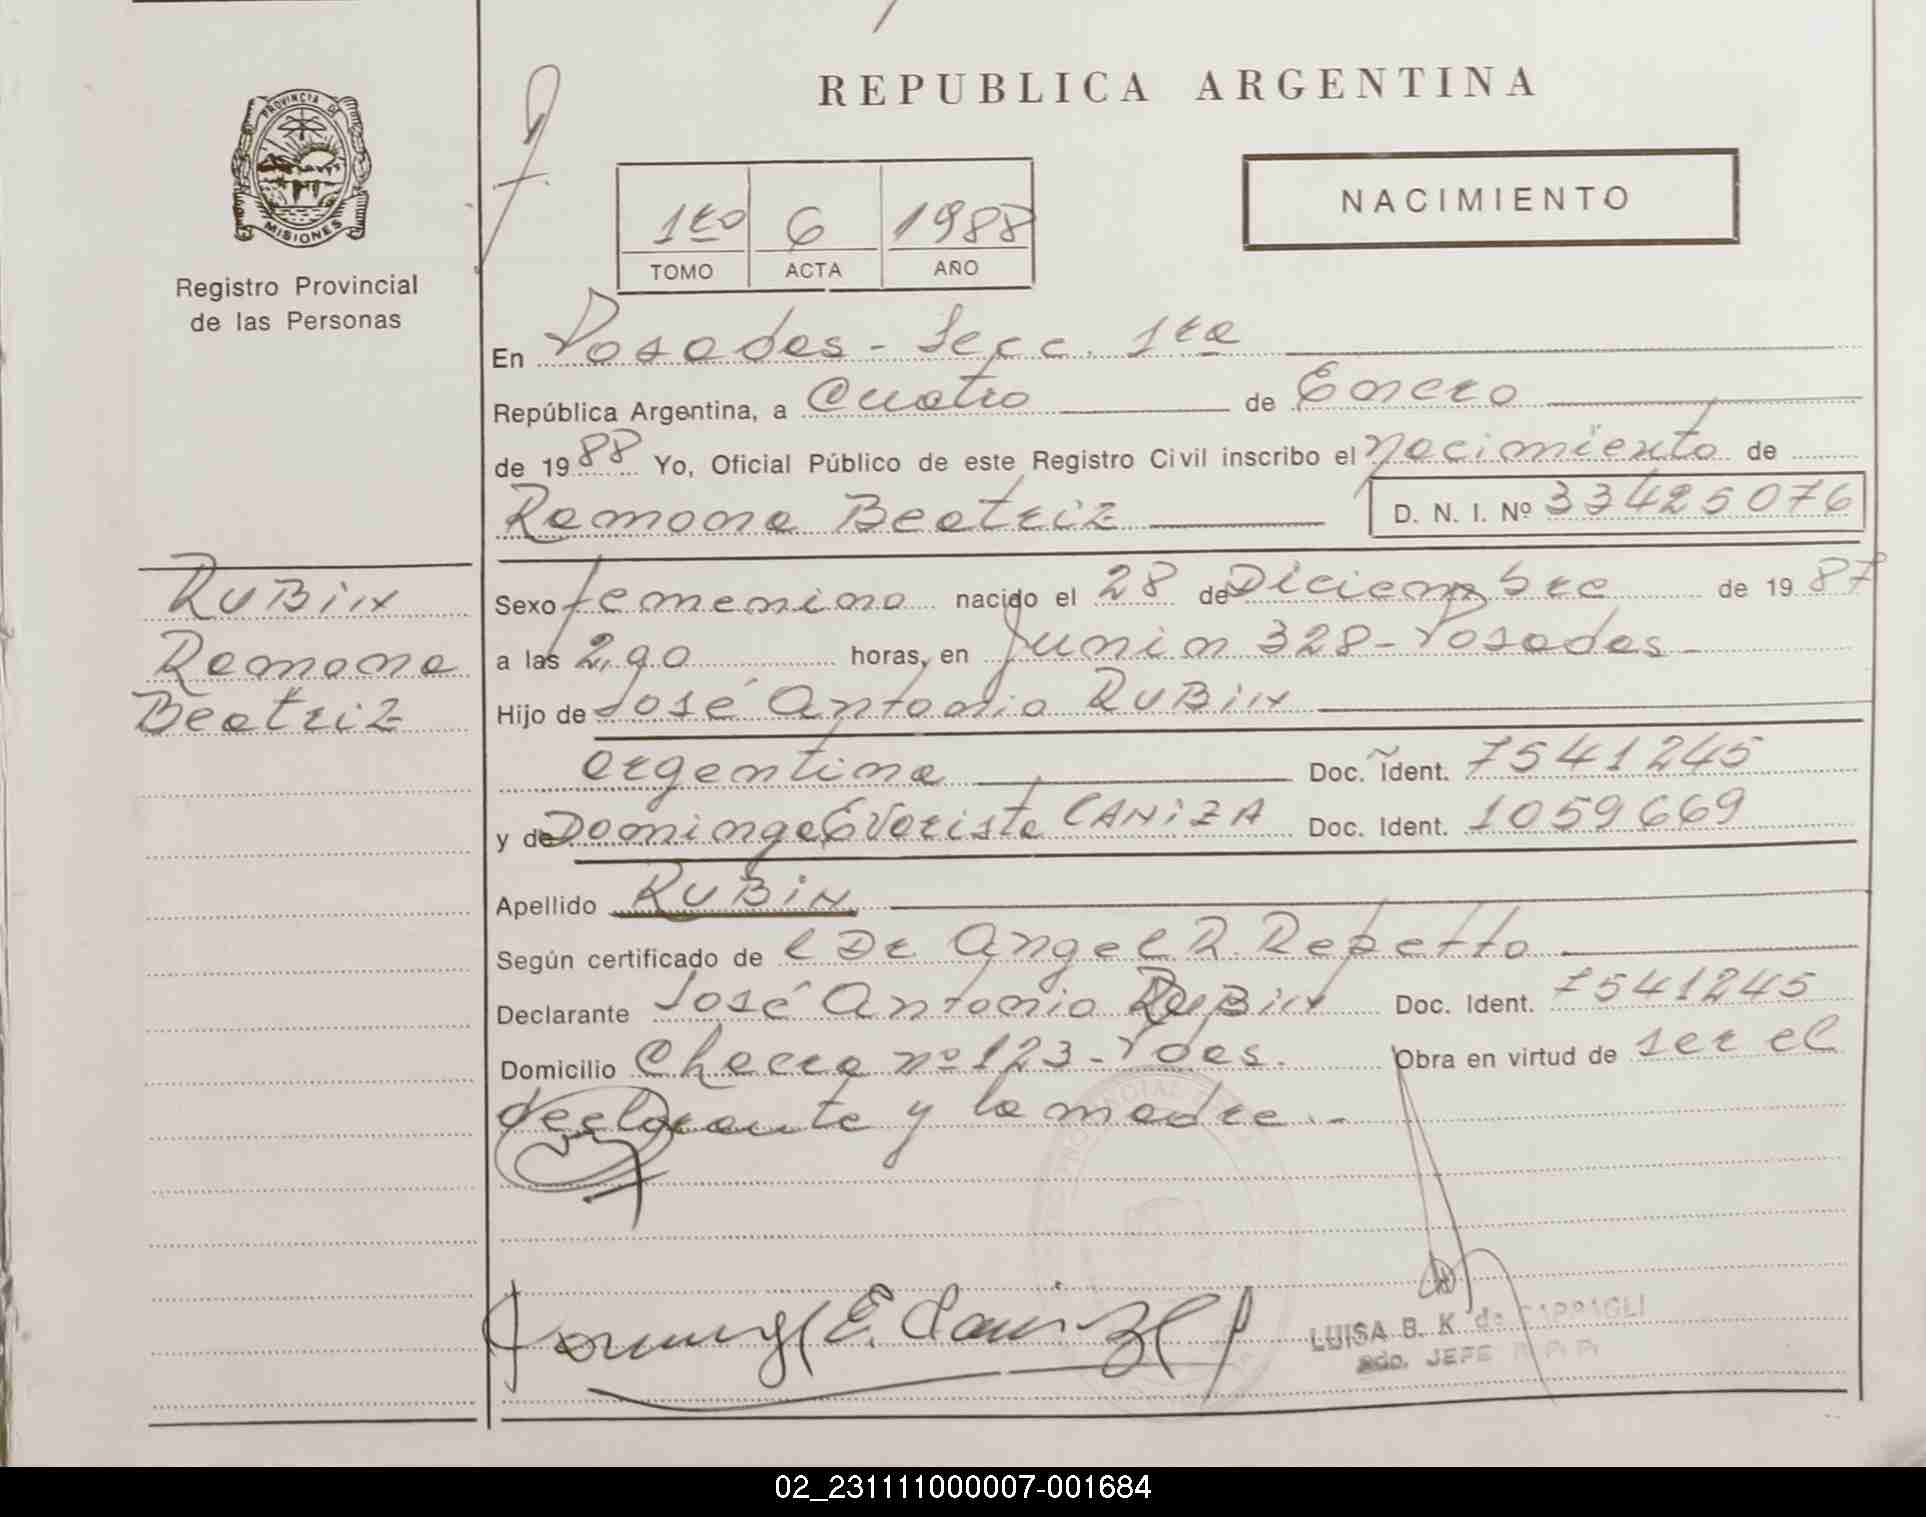 REPUBLICA ARGENTINA
PROVINCIA DE
MISIONES
Registro Provincial
de las Personas
NACIMIENTO
1ro 6 1988
TOMO ACTA AÑO
En Posadas - Secc. 1ra
República Argentina, a Cuatro de Enero
de 1988 Yo, Oficial Público de este Registro Civil inscribo el Nacimiento de
Ramona Beatriz D. N. I. Nº 33425076
RUBIN
Ramona
Beatriz
Sexo femenino nacido el 28 de Diciembre de 1987
a las horas, en Junin 328 - Posadas -
Hijo de José Antonio RUBIN
argentina Doc. Ident. 7541245
y de Dominga Evarista CANIZA Doc. Ident. 1059669
Apellido RUBIN
Según certificado de l Dr Angel R. Repetto
Declarante José Antonio RUBIN Doc. Ident. 7541245
Domicilio Chacra nº 123 - Pdas. Obra en virtud de ser el
declarante y la madre. -
Dominga E. Caniza
LUISA B. K. de
JEFE
02_231111000007-001684